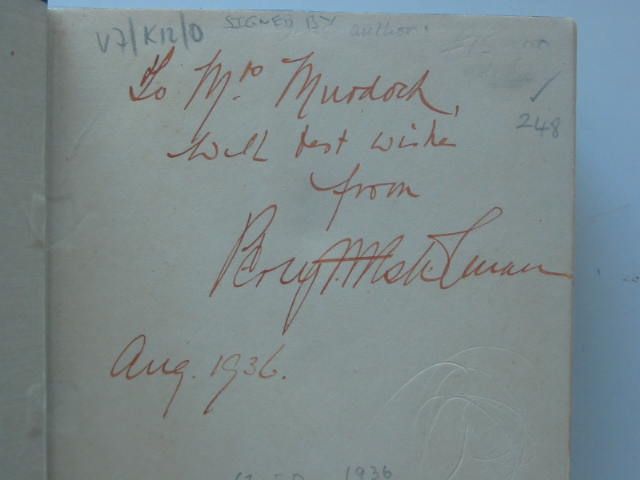 V7/K12/0 SIGNED BY author.
248
To Mrs Murdoch,
with best wishes
from
Percy
Aug. 1936.
1936